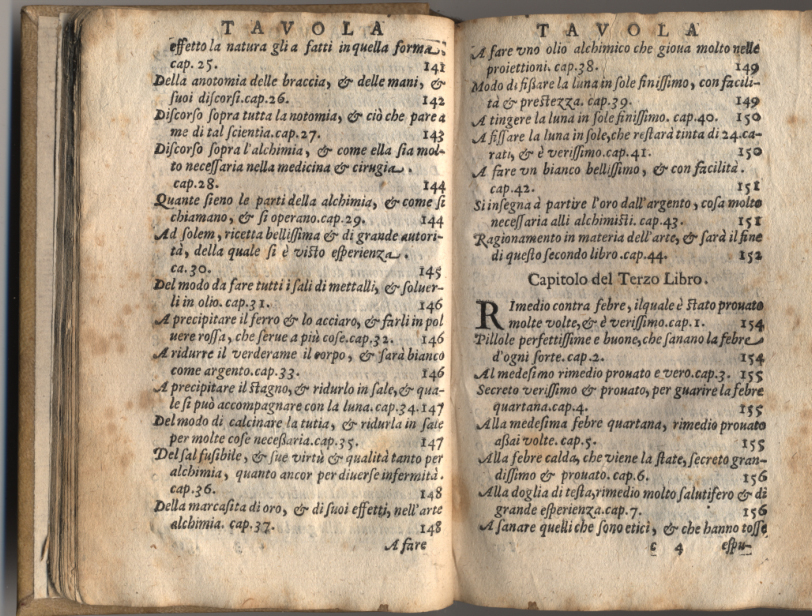 TAVOLA
effetto la natura gli a fatti in quella forma.
cap. 25. 141
Della anotomia delle braccia, & delle mani, &
suoi discorsi.cap.26. 142
Discorso sopra tutta la notomia, & ciò che pare a
me di tal scientia.cap.27. 143
Discorso sopra l'alchimia, & come ella sia mol-
to necessaria nella medicina & cirugia.
cap.28. 144
Quante sieno le parti della alchimia, & come si
chiamano, & si operano.cap.29. 144
Ad solem, ricetta bellissima & di grande autori-
tà, della quale si è visto esperienza.
ca.30. 145
Del modo da fare tutti i sali di mettalli, & soluer-
li in olio.cap.31. 146
A precipitare il ferro & lo acciaro, & farli in pol
uere rossa, che serue a più cose.cap.32. 146
A ridurre il verderame il corpo, & sarà bianco
come argento.cap.33. 146
A precipitare il stagno, & ridurlo in sale, & qua-
le si può accompagnare con la luna.cap.34. 147
Del modo di calcinare la tutia, & ridurla in sale
per molte cose necessaria.cap.35. 147
Del sal fusibile, & sue virtù & qualità tanto per
alchimia, quanto ancor per diuerse infermità.
cap.36. 148
Della marcasita di oro, & di suoi effetti, nell'arte
alchimia. cap.37. 148
A fare
TAVOLA
A fare vno olio alchimico che gioua molto nelle
proiettioni. cap.38. 149
Modo di fissare la luna in sole finissimo, con facili-
tà & prestezza. cap.39. 149
A tingere la luna in sole finissimo. cap.40. 150
A fissare la luna in sole, che restarà tinta di 24.ca-
rati, & è verissimo.cap.41. 150
A fare un bianco bellissimo, & con facilità.
cap.42. 151
Si insegna à partire l'oro dall'argento, cosa molto
necessaria alli alchimisti. cap.43. 151
Ragionamento in materia dell'arte, & sarà il fine
di questo secondo libro.cap.44. 152
Capitolo del Terzo Libro.
RImedio contra febre, ilquale è stato prouato
molte volte, & è verissimo.cap.1. 154
Pillole perfettissime e buone, che sanano la febre
d'ogni sorte.cap.2. 154
Al medesimo rimedio prouato e vero.cap.3. 155
Secreto verissimo & prouato, per guarire la febre
quartana.cap.4. 155
Alla medesima febre quartana, rimedio prouato
assai volte. cap.5. 155
Alla febre calda, che viene la state, secreto gran-
dissimo & prouato. cap.6. 156
Alla doglia di testa, rimedio molto salutifero & di
grande esperienza.cap.7. 156
A sanare quelli che sono etici, & che hanno tosse
c 4 espu-